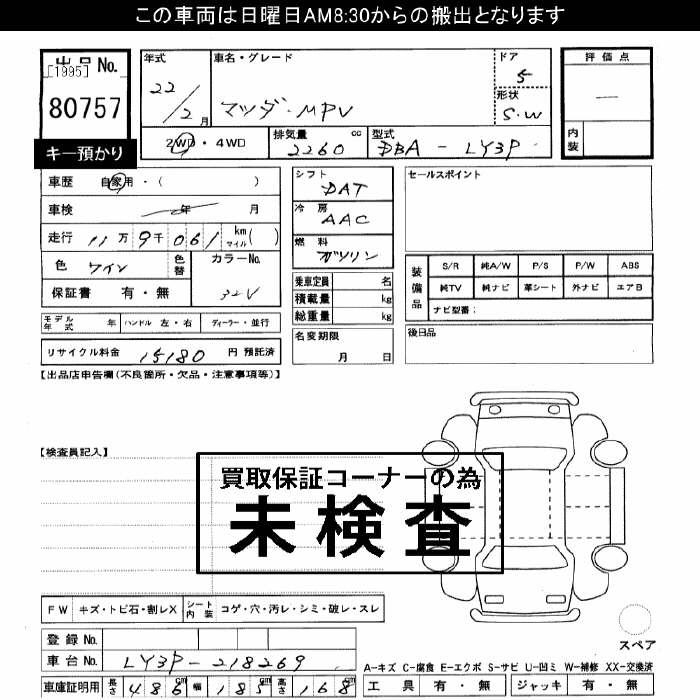 この車両は日曜日AM8:30からの搬出となります
出品No.
[1995]
80757
キー預かり
年式
22/2月
車名・グレード
マツダ・MPV
ドア
5
形状
S・W
評価点
—
内装
2WD・4WD
排気量 2260 cc
型式 DBA-LY3P
車歴 自家用・( )
車検 年 月
走行 11万9千061 km マイル( )
色 ワイン
色替
カラーNo.
32V
保証書 有・無
シフト
DAT
冷房
AAC
燃料
ガソリン
乗車定員 名
積載量 kg
総重量 kg
セールスポイント
装備品
S/R 純A/W P/S P/W ABS
純TV 純ナビ 革シート 外ナビ エアB
ナビ型番:
モデル年式 年 ハンドル 左・右 ディーラー・並行
名変期限
月 日
後日品
リサイクル料金 15180 円 預託済
【出品店申告欄(不良箇所・欠品・注意事項等)】
【検査員記入】
買取保証コーナーの為
未検査
FW キズ・トビ石・割レX シート内装 コゲ・穴・汚レ・シミ・破レ・スレ
登録No.
車台No. LY3P-218269
車庫証明用 長さ 486cm 幅 185cm 高さ 168cm
スペア
A-キズ C-腐食 E-エクボ S-サビ U-凹ミ W-補修 XX-交換済
工具 有・無 ジャッキ 有・無